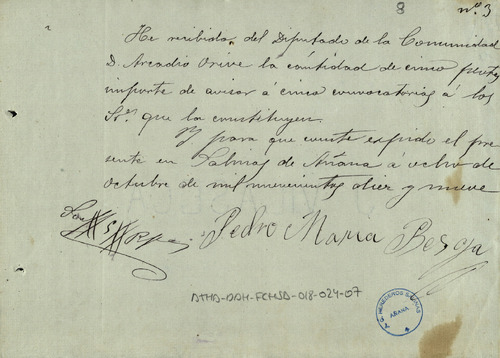 8 nº. 3
He recibido del Diputado de la Comunidad
D. Arcadio Orive la cantidad de cinco pesetas
importe de avisar a cinco convocatorias á los
Srs. que la constituyen.
Y para que conste expido el pre
sente en Salinas de Añana á ocho de
octubre de mil novecientos diez y nueve
Son 5 Ptas. Pedro Maria Beroja
ATHA-DAH-FCHSA-018-024-07
HEREDEROS SALINAS
AÑANA